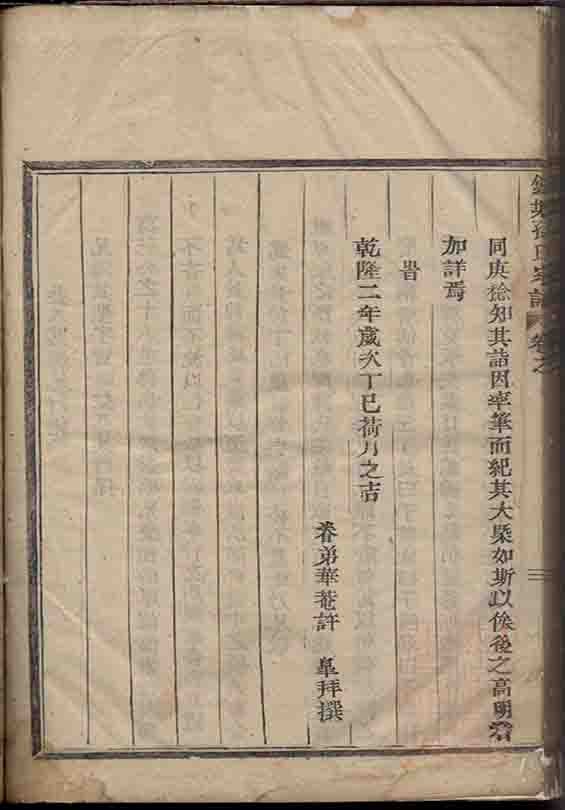 氏宗譜 卷之
同庚稔知其詣因率筆而紀其大槩如斯以俟後之高明者
加詳焉
旹
乾隆二年歲次丁巳荷月之吉
眷弟華菴許 拜撰